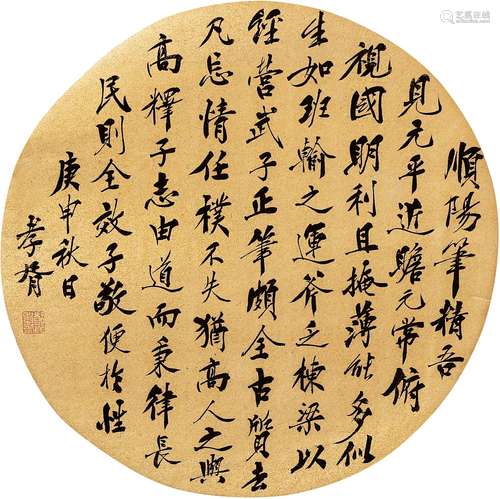 順陽筆精吾
見元平近瞻元常俯
視國期利且掩薄能多似
生如班輸之運斧乏棟梁以
經營武子正筆頗全古質去
凡忘情任樸不失猶高人之與
高釋子志由道而秉律長
民則全效子敬便於性
庚申秋日
孝胥
艺狐在线